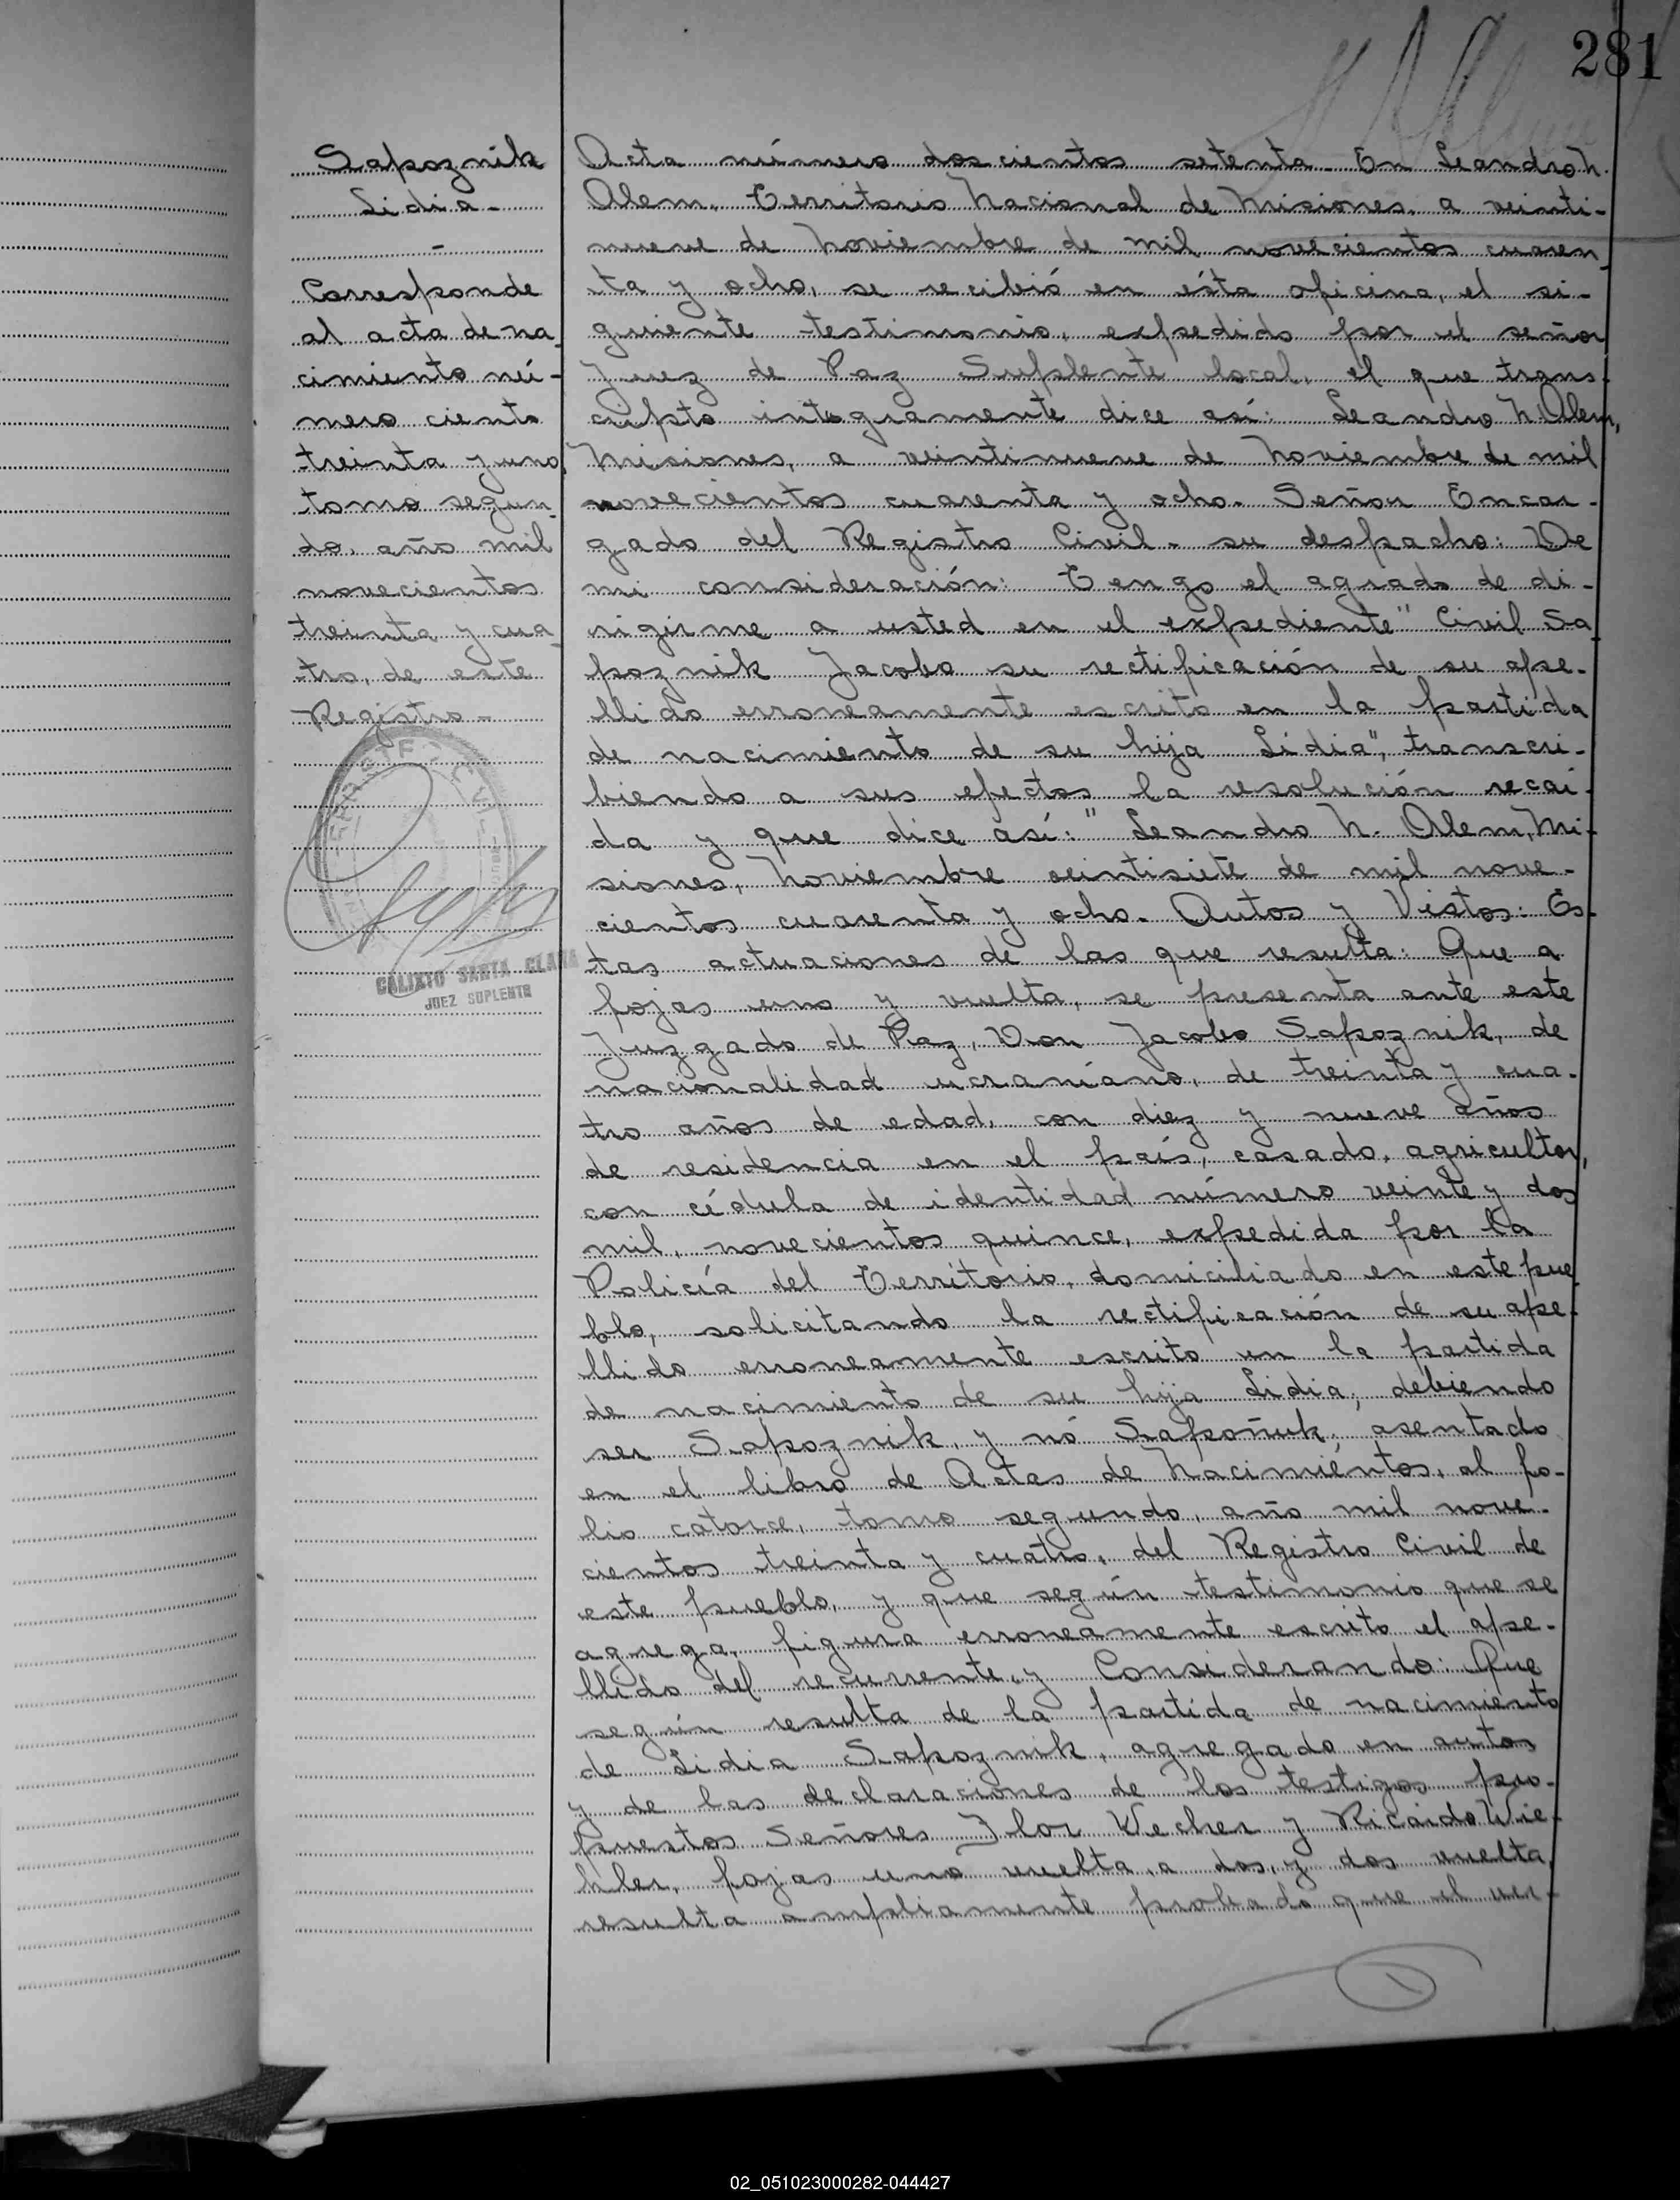 281
Sapoznik
Lidia-
-
Corresponde
al acta de na-
cimiento nú-
mero ciento
treinta y uno,
tomo segun-
do, año mil
novecientos
treinta y cua-
tro, de este
Registro-
CALIXTO SANTA CLARA
JUEZ SUPLENTE
Acta número doscientos setenta. En Leandro N.
Alem, Territorio Nacional de Misiones, a veinti-
nueve de Noviembre de mil novecientos cuaren-
ta y ocho, se recibió en ésta oficina, el si-
guiente testimonio, expedido por el señor
Juez de Paz Suplente local, el que trans-
cripto integramente dice así: Leandro N. Alem,
Misiones, a veintinueve de Noviembre de mil
novecientos cuarenta y ocho. Señor Encar-
gado del Registro Civil - su despacho: De
mi consideración: Tengo el agrado de di-
rigirme a usted en el expediente "Civil Sa-
poznik Jacobo su rectificación de su ape-
llido erroneamente escrito en la partida
de nacimiento de su hija Lidia", transcri-
biendo a sus efectos la resolución recaí-
da y que dice así: "Leandro N. Alem, Mi-
siones, Noviembre veintisiete de mil nove-
cientos cuarenta y ocho. Autos y Vistos: Es-
tas actuaciones de las que resulta: Que a
fojas uno y vuelta, se presenta ante este
Juzgado de Paz, Don Jacobo Sapoznik, de
nacionalidad ucraniano, de treinta y cua-
tro años de edad, con diez y nueve años
de residencia en el país, casado, agricultor,
con cédula de identidad número veinte y dos
mil, novecientos quince, expedida por la
Policía del Territorio, domiciliado en este pue-
blo, solicitando la rectificación de su ape-
llido erroneamente escrito en la partida
de nacimiento de su hija Lidia, debiendo
ser Sapoznik, y nó Sapoñuk, asentado
en el libro de Actas de Nacimientos, al fo-
lio catorce, tomo segundo, año mil nove-
cientos treinta y cuatro, del Registro Civil de
este pueblo, y que según testimonio que se
agrega, figura erroneamente escrito el ape-
llido del recurrente, y Considerando: Que
según resulta de la partida de nacimiento
de Lidia Sapoznik, agregado en autos
y de las declaraciones de los testigos pro-
puestos Señores Flor Wecher y Ricardo Wie-
hler, fojas uno vuelta, a dos, y dos vuelta,
resulta ampliamente probado que el ver-
02_051023000282-044427